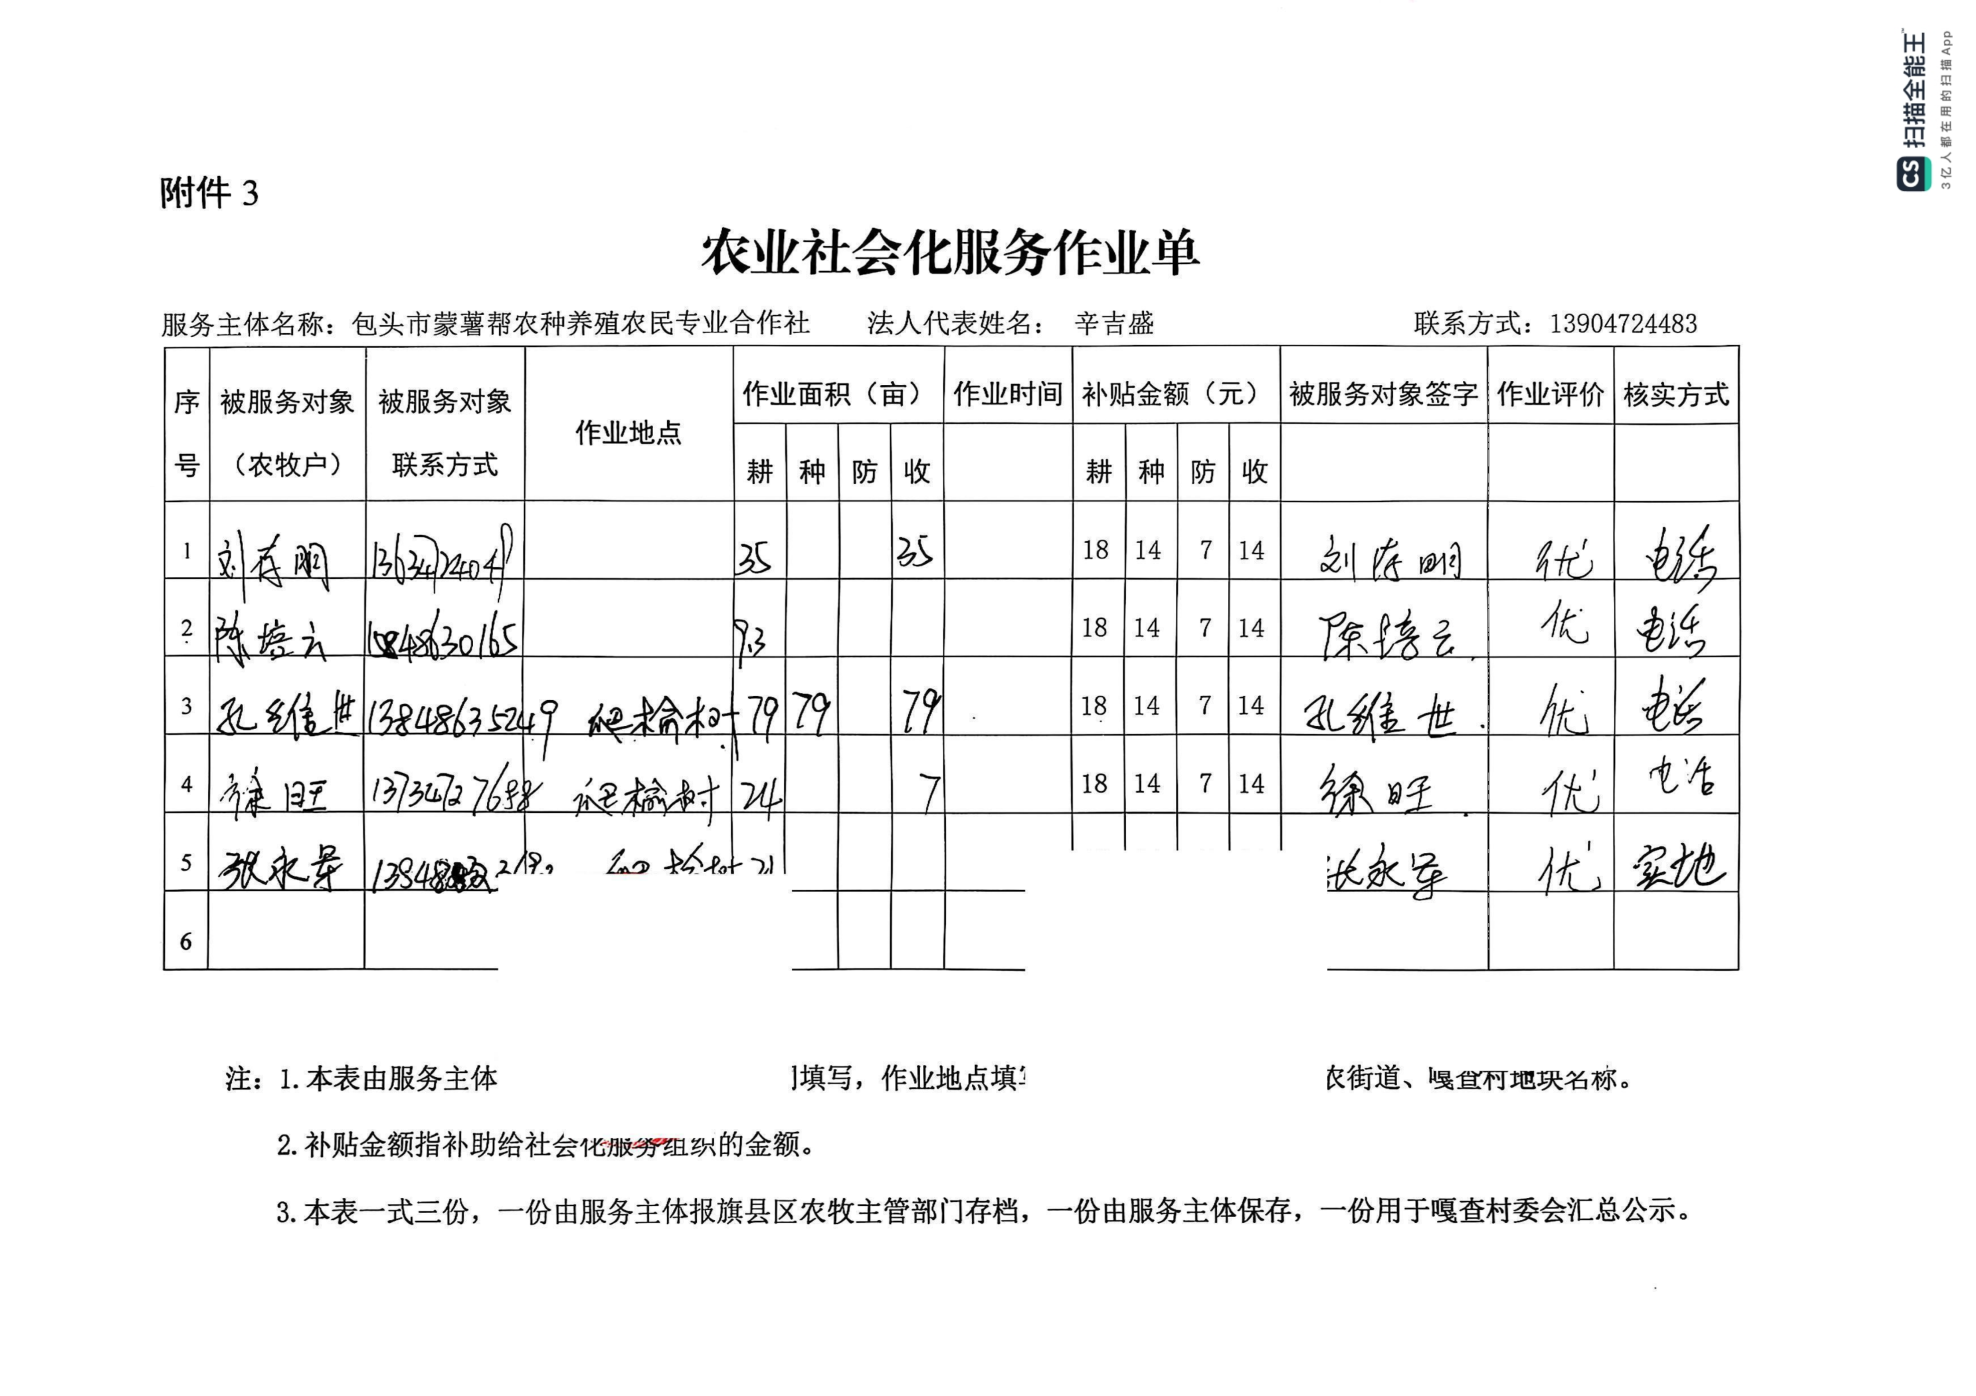 CS 扫描全能王
3亿人都在用的扫描App
附件 3
农业社会化服务作业单
服务主体名称：包头市蒙薯帮农种养殖农民专业合作社 法人代表姓名： 辛吉盛 联系方式：13904724483
序号 被服务对象（农牧户） 被服务对象联系方式 作业地点 作业面积（亩） 作业时间 补贴金额（元） 被服务对象签字 作业评价 核实方式
耕 种 防 收 耕 种 防 收
1 刘存明 35 35 18 14 7 14 刘存明 优 电话
2 陈培云 15848630165 93 18 14 7 14 陈培云 优 电话
3 孔维世 13848635249 爬榆树 79 79 79 18 14 7 14 孔维世 优 电话
4 徐旺 13734727688 爬榆树 24 7 18 14 7 14 徐旺 优 电话
5 张永军 张永军 优 实地
6
注：1.本表由服务主体 填写，作业地点填写 农街道、嘎查村地块名称。
2.补贴金额指补助给社会化服务组织的金额。
3.本表一式三份，一份由服务主体报旗县区农牧主管部门存档，一份由服务主体保存，一份用于嘎查村委会汇总公示。